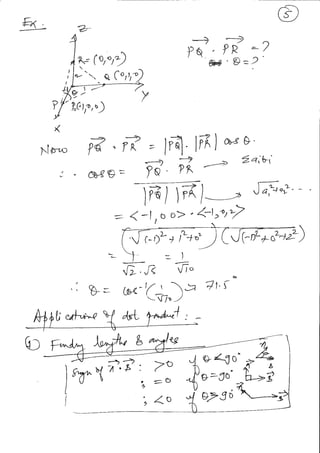 5
Ex.
Z
PQ · PR = ?
θ = ?
R = (0,0,2)
Q (0,1,0)
θ
Y
P (1,0,0)
X
Now PQ · PR = |PQ| · |PR| cos θ.
∴ cos θ = PQ · PR / |PQ| |PR| → Σ aibi
→ √a₁²+a₂² - - -
= <-1, 0 0> · <-1, 0, 2>
(√(-1)² + 1² + 0²) (√(-1)² + 0² + 2²)
= 1 / √2 · √5 = 1 / √10
∴ θ = cos⁻¹(1/√10) ⇒ 71.5°
Applications of dot product : -
① Finding lengths & angles
Sign of A · B : > 0 if θ < 90°
; = 0 if θ = 90°
; < 0 if θ > 90°